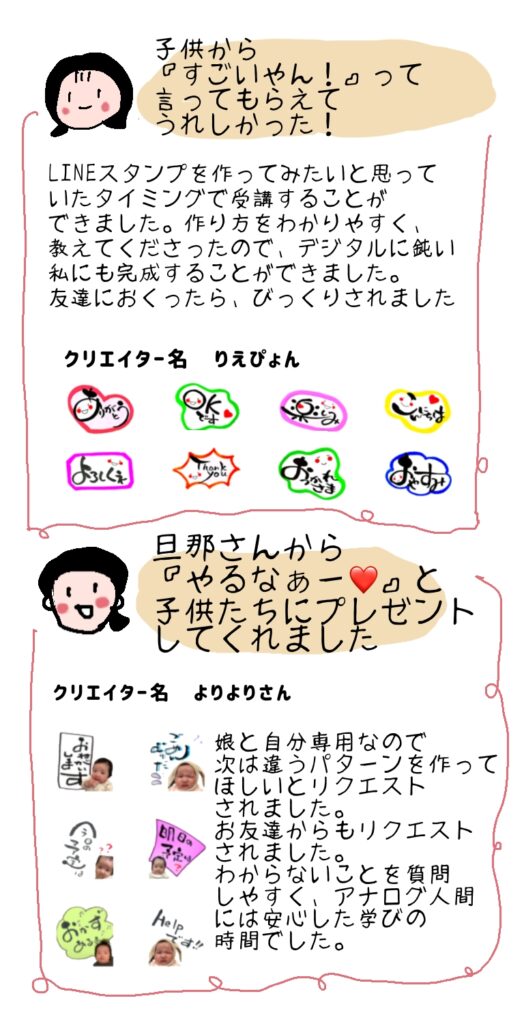 子供から
『すごいやん！』って
言ってもらえて
うれしかった！
LINEスタンプを作ってみたいと思って
いたタイミングで受講することが
できました。作り方をわかりやすく、
教えてくださったので、デジタルに鈍い
私にも完成することができました。
友達におくったら、びっくりされました
クリエイター名　りえぴょん
ありがとう
OK
です
楽しみ
こんにちは
よろしくね
Thank
you
おつかれ
さま
おやすみ
旦那さんから
『やるなぁー❤️』と
子供たちにプレゼント
してくれました
クリエイター名　よりよりさん
おねがい
します
ごめん
今日の
予定は
??
明日の
予定は
?
おかず
ある?
Help
です!!
娘と自分専用なので
次は違うパターンを作って
ほしいとリクエスト
されました。
お友達からもリクエスト
されました。
わからないことを質問
しやすく、アナログ人間
には安心した学びの
時間でした。